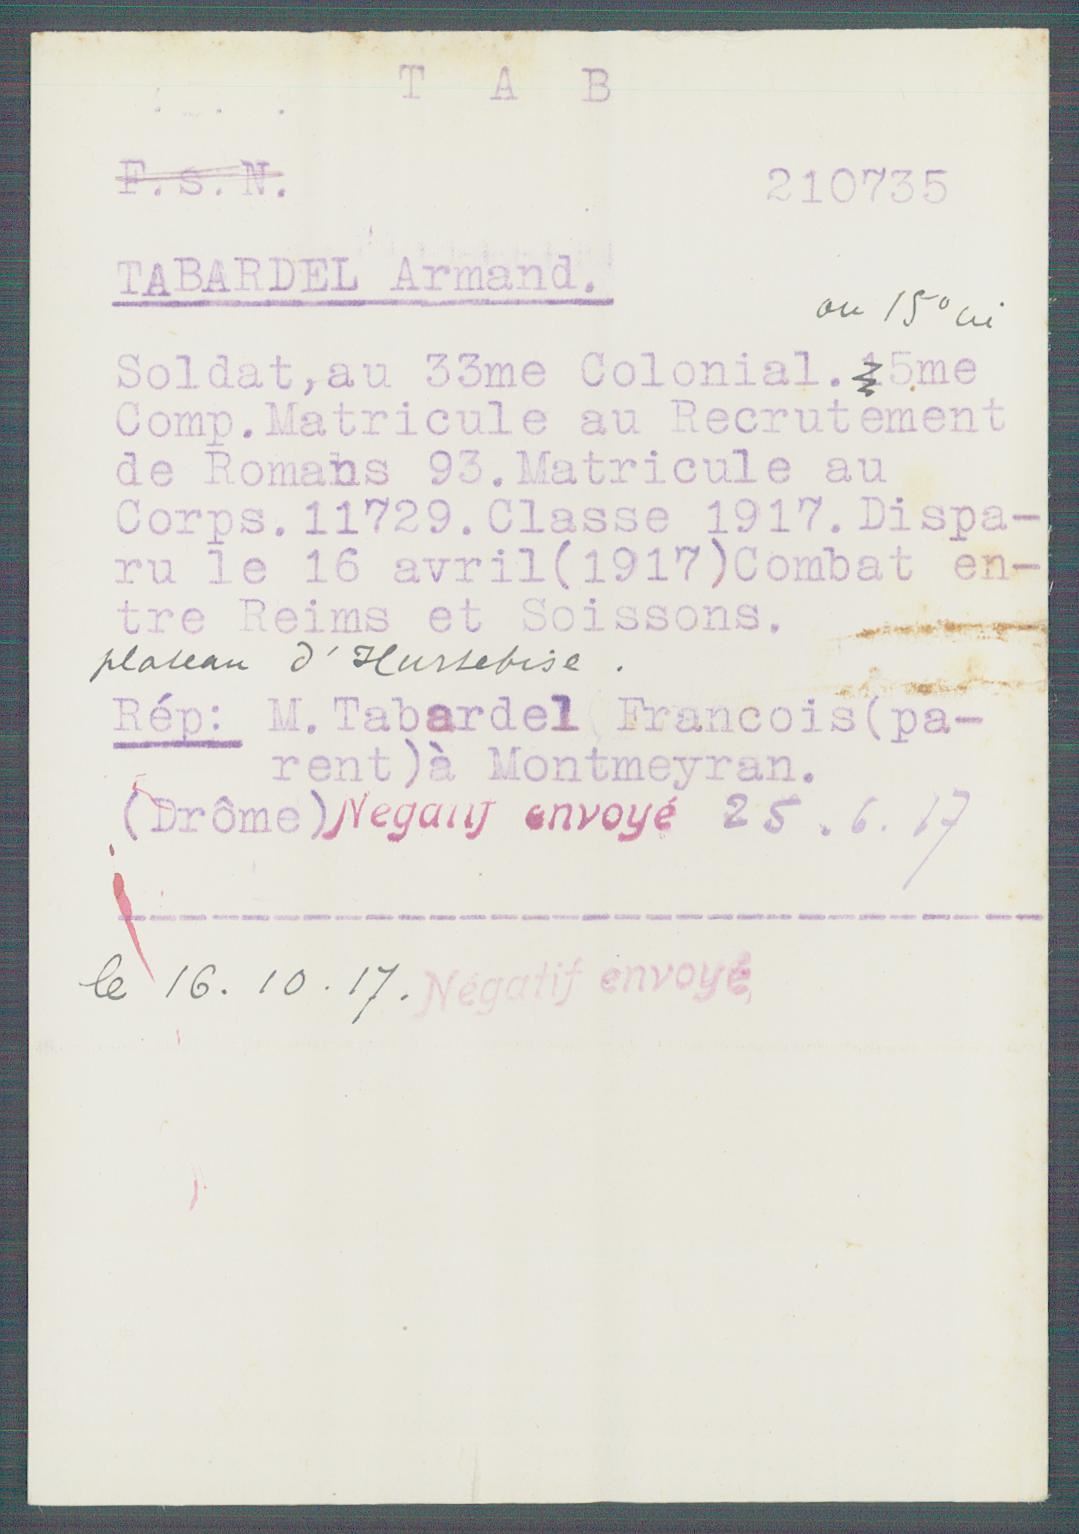 T A B
F.s.N.
210735
TABARDEL Armand.
ou 15° ci
Soldat,au 33me Colonial. 15me
Comp.Matricule au Recrutement
de Romans 93.Matricule au
Corps.11729.Classe 1917.Dispa-
ru le 16 avril(1917)Combat en-
tre Reims et Soissons.
plateau d'Hurtebise .
Rép: M.Tabardel Francois(pa-
rent)à Montmeyran.
(Drôme) Négatif envoyé 25.6.17
le 16.10.17. Négatif envoyé